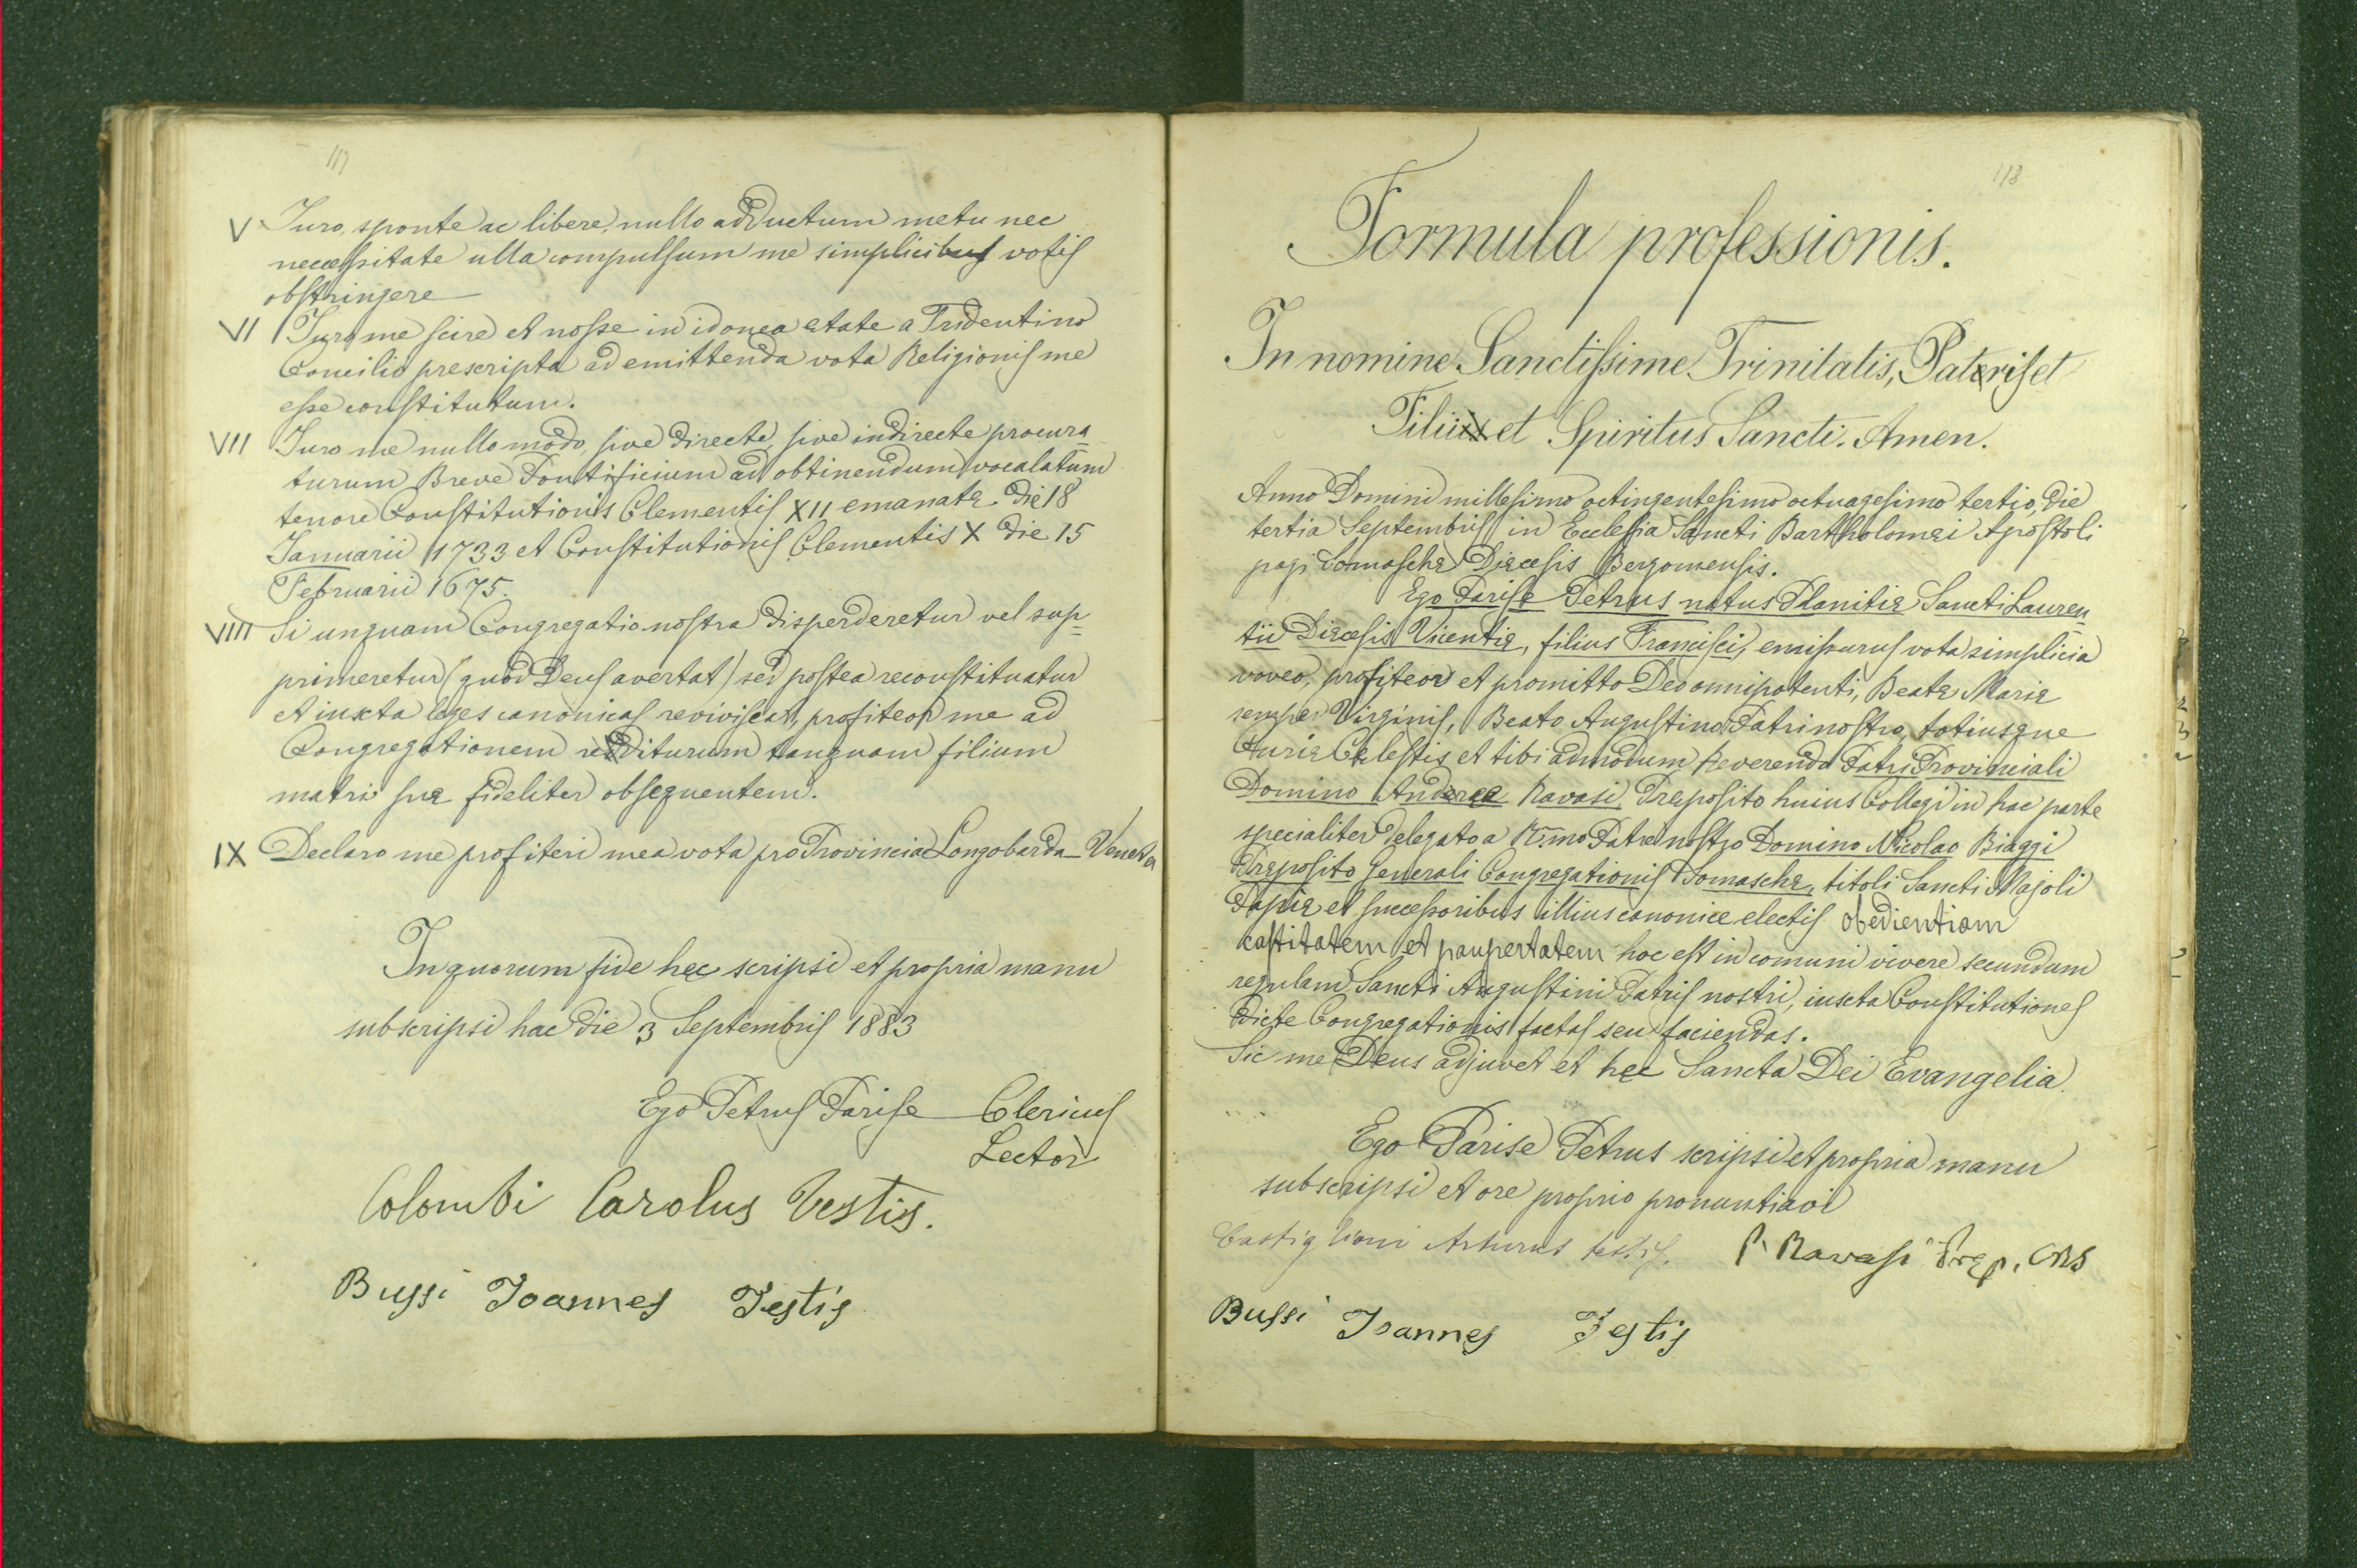 117
V Juro, sponte ac libere, nullo adductum metu nec
necessitate ulla compulsum me simplicibus votis
obstringere
VI Juro me scire et nosse in idonea ętate a Tridentino
Concilio prescripta ad emittenda vota Religionis me
esse constitutum.
VII Juro me nullo modo, sive directe, sive indirecte procura_
turum Breve Pontificium ad obtinendum vocalatum
tenore Constitutionis Clementis XII emanatę die 18
Januarii 1733 et Constitutionis Clementis X die 15
Februarii 1675.
VIII Si unquam Congregatio nostra disperderetur vel sup=
primeretur (quod Deus avertat) sed postea reconstituatur
et iuxta leges canonicas reviviscat, profiteor me ad
Congregationem rediturum tanquam filium
matri suę fideliter obsequentem.
IX Declaro me profiteri mea vota pro Provincia Longobarda-Veneta
In quorum fide hęc scripsi et propria manu
subscripsi hac die 3 Septembris 1883
Ego Petrus Parise Clericus
Lector
Colombi Carolus Testis.
Bussi Joannes Testis
118
Formula professionis.
In nomine Sanctissime Trinitatis, Patris et
Filii et Spiritus Sancti. Amen.
Anno Domini millesimo octingentesimo octuagesimo tertio, die
tertia Septembris in Ecclesia Sancti Bartholomęi Apostoli
pagi Somaschę Dięcesis Bergomensis.
Ego Parise Petrus natus Planitię Sancti Lauren_
tii Dięcesis Vicentię, filius Francisci, emissurus vota simplicia
voveo, profiteor et promitto Deo omnipotenti, Beatę Marię
semper Virginis, Beato Augustino Patri nostro, totiusque
Curię Cęlestis et tibi admodum Reverendo Patri Provinciali
Domino Andręę Ravasi, Pręposito huius Collegi in hac parte
specialiter delegato a R.mo Patre nostro Domino Nicolao Biaggi
Pręposito Generali Congregationis Somaschę, titoli Sancti Majoli
Papię et successoribus illius canonice electis obedientiam
castitatem et paupertatem hoc est in comuni vivere secundum
regulam Sancti Augustini Patris nostri, iuxta Constitutiones
dicte Congregationis factas seu faciendas.
Sic me Deus adjuvet et hęc Sancta Dei Evangelia.
Ego Parise Petrus scripsi et propria manu
subscripsi et ore proprio pronuntiavi
Castiglioni Arturus testis. P. Ravasi Pręp. CRS
Bussi Joannes Testis